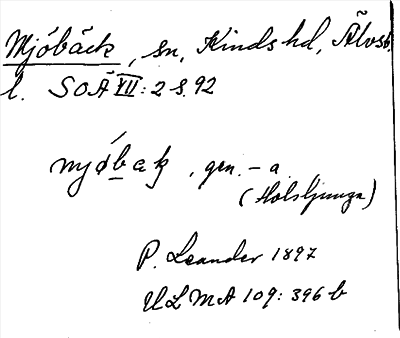 Mjöbäck, sn, Kinds hd, Älvsb
l. SOÄ VII:2 s. 92
mjøbæk, gen. -a
(Holsljunga)
P. Leander 1897
ULMA 109: 396 b